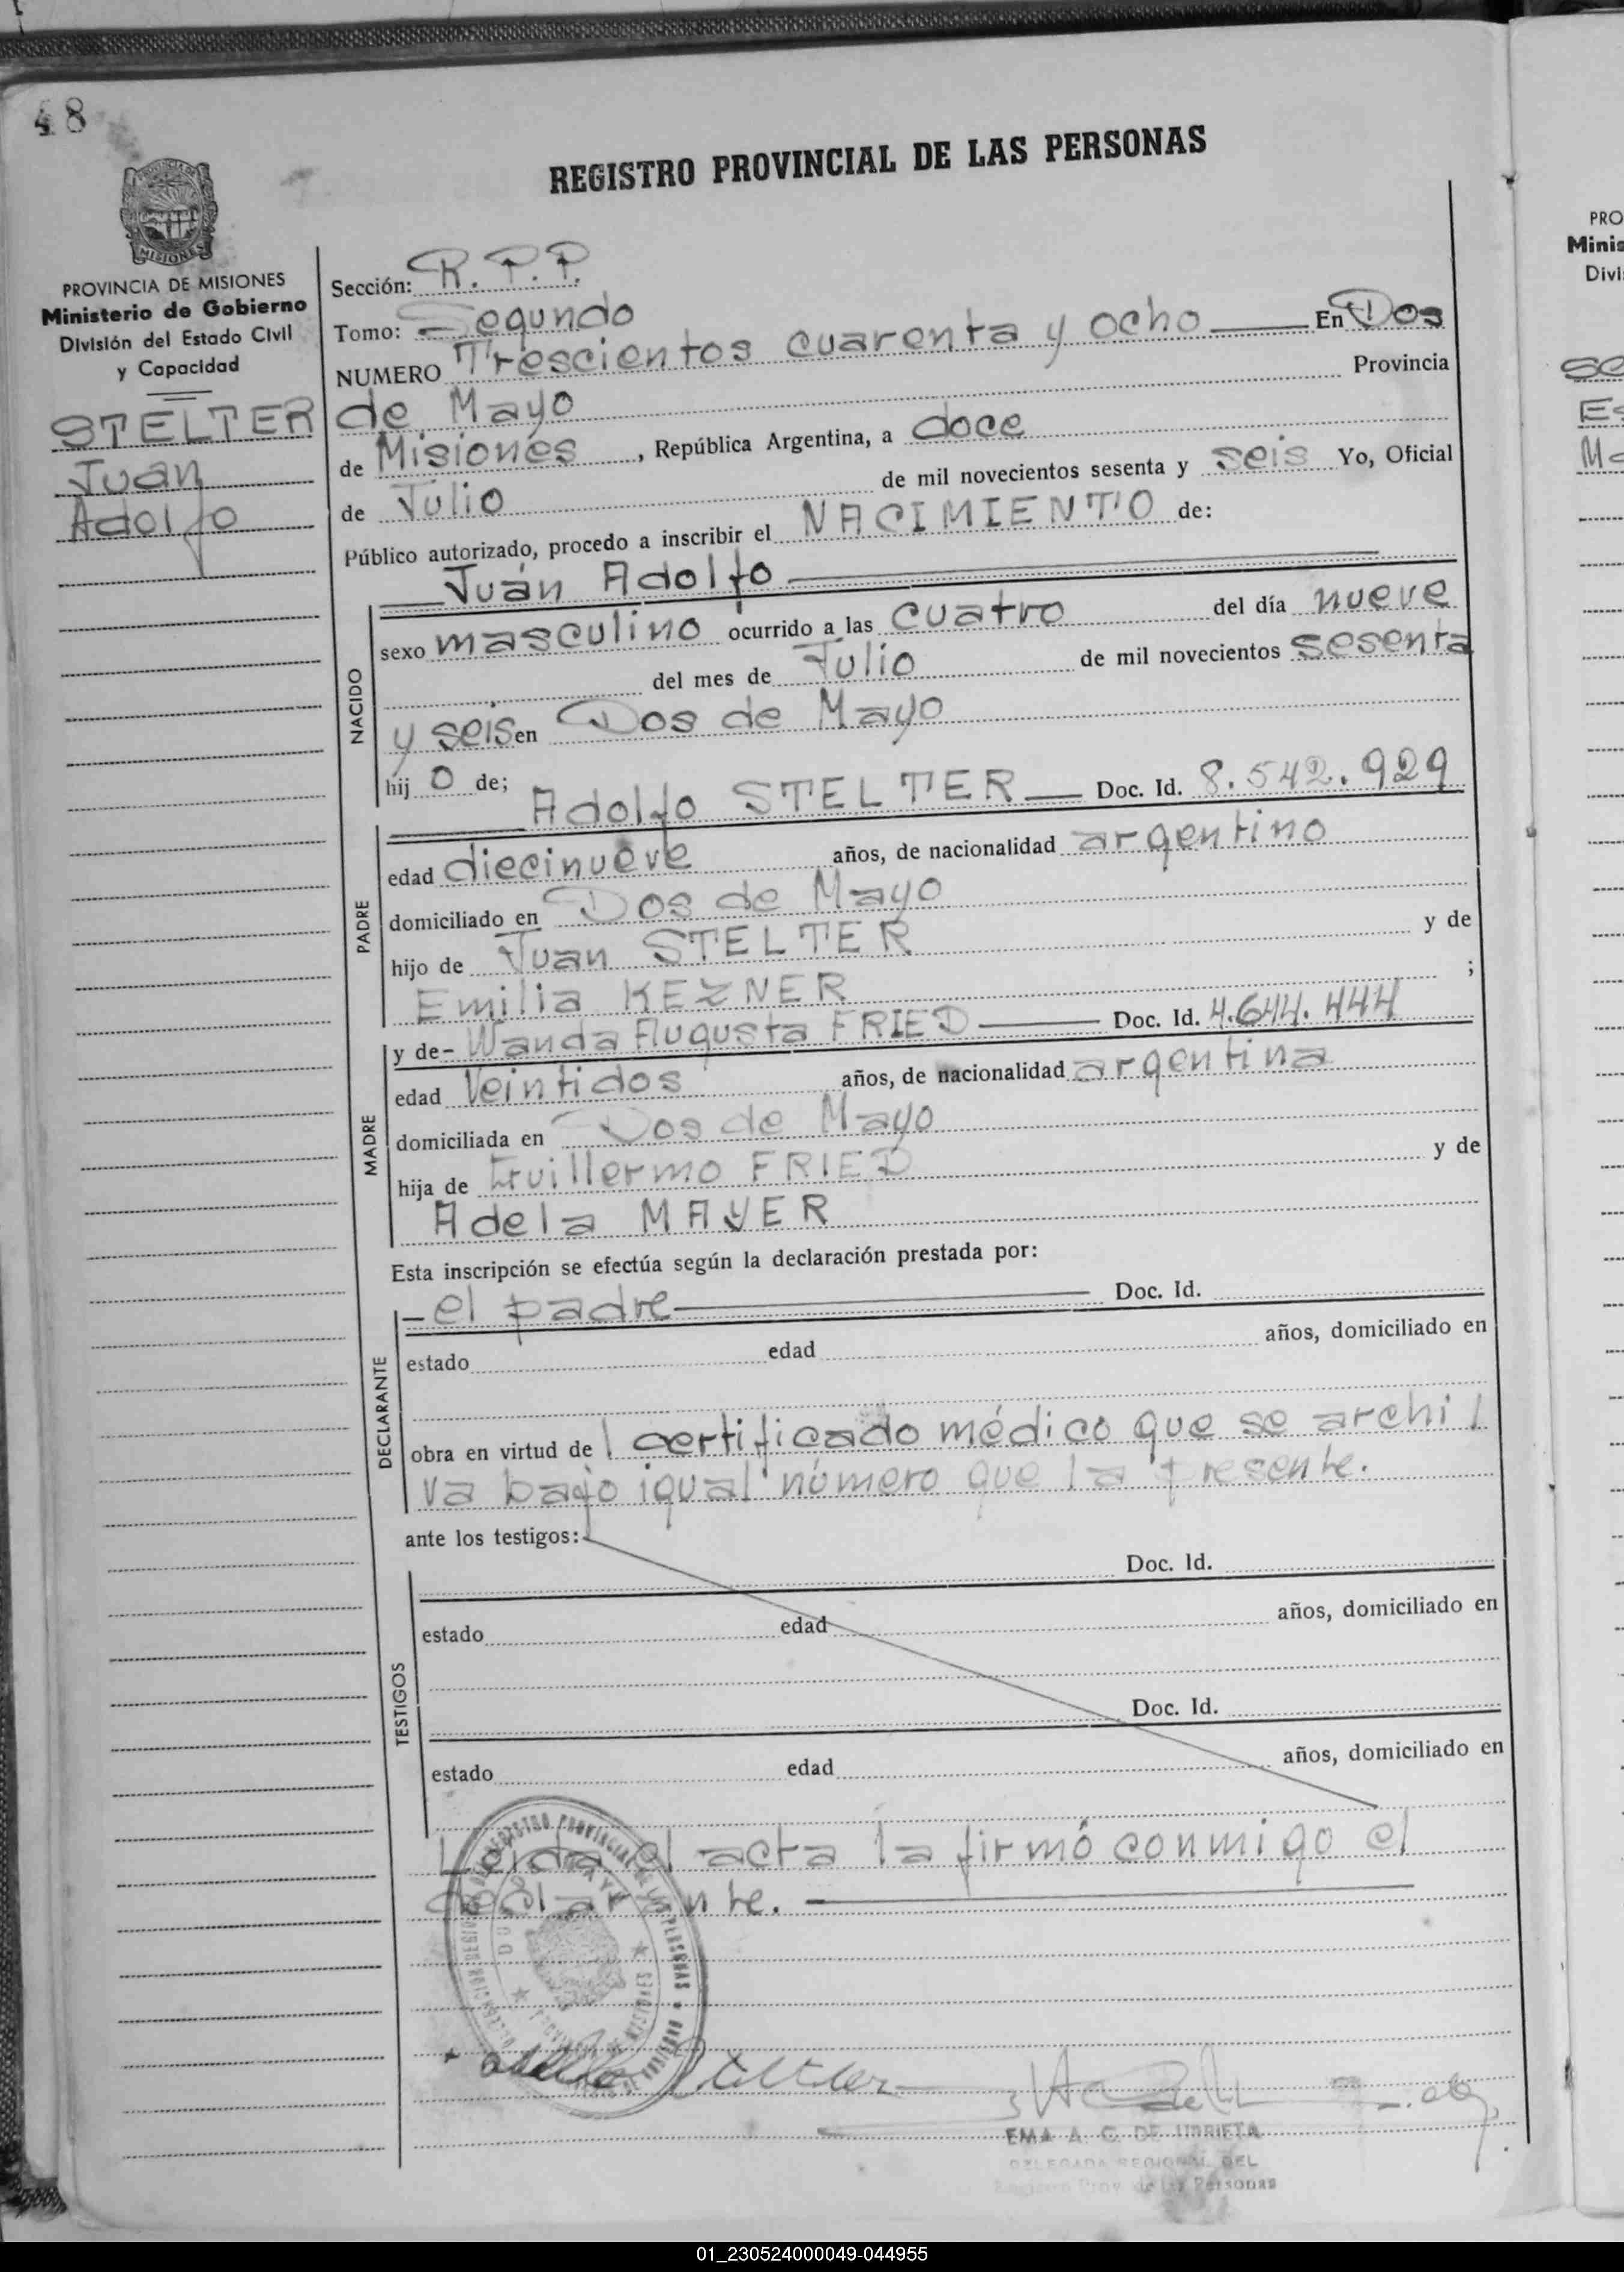 48
REGISTRO PROVINCIAL DE LAS PERSONAS
MISIONES
PROVINCIA DE MISIONES
Ministerio de Gobierno
División del Estado Civil
y Capacidad
STELTER
Juan
Adolfo
Sección: R. P. P.
Tomo: Segundo
NUMERO Trescientos cuarenta y ocho En Dos
de Mayo Provincia
de Misiones, República Argentina, a doce
de Julio de mil novecientos sesenta y seis Yo, Oficial
Público autorizado, procedo a inscribir el NACIMIENTO de:
Juán Adolfo
NACIDO
sexo masculino ocurrido a las cuatro del día nueve
del mes de Julio de mil novecientos sesenta
y seis en Dos de Mayo
hij o de; Adolfo STELTER Doc. Id. 8.542.929
PADRE
edad diecinueve años, de nacionalidad argentino
domiciliado en Dos de Mayo
hijo de Juan STELTER y de
Emilia KEZNER ;
y de- Wanda Augusta FRIED Doc. Id. 4.644.444
MADRE
edad Veintidos años, de nacionalidad argentina
domiciliada en Dos de Mayo
hija de Guillermo FRIED y de
Adela MAYER
Esta inscripción se efectúa según la declaración prestada por:
- el padre Doc. Id.
DECLARANTE
estado edad años, domiciliado en
obra en virtud de l certificado médico que se archi/
va bajo igual número que la presente.
ante los testigos:
Doc. Id.
TESTIGOS
estado edad años, domiciliado en
Doc. Id.
estado edad años, domiciliado en
Leida el acta la firmó conmigo el
declarante.
EMA A. C. DE URRIETA
DELEGADA REGIONAL DEL
Registro Prov de las Personas
PRO
Minis
Divi
01_230524000049-044955